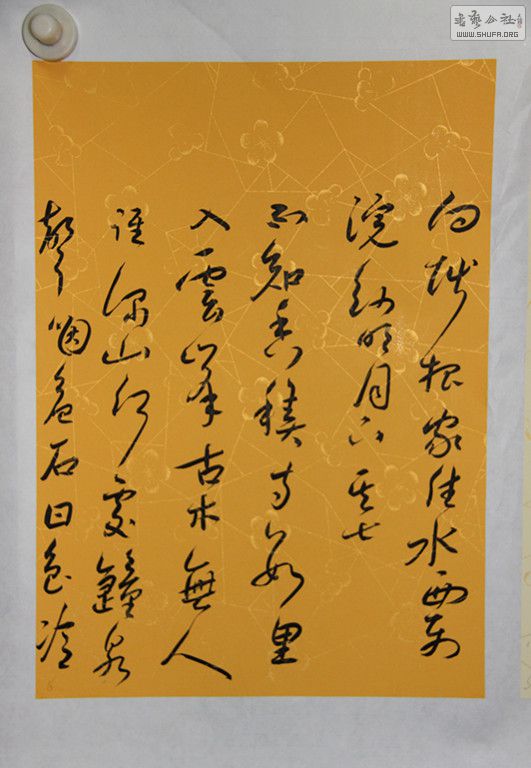 書藝公社
WWW.SHUFA.ORG
向堪把家住水西東
浣紗明月下其七
不知香積寺數里
入雲峯古木無人
徑深山何處鐘泉
聲咽危石日色冷
6